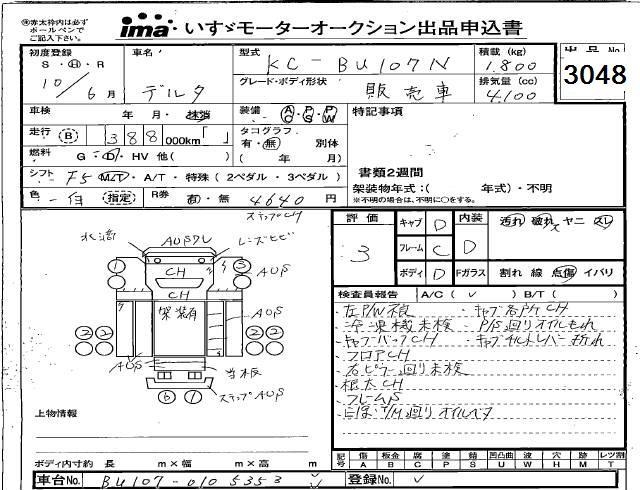 ※赤太枠内は必ず
ボールペンで
ご記入下さい。
ima いすゞモーターオークション出品申込書
初度登録 車名 型式 積載(kg) 出品No.
S・H・R KC-BU107N 1,800 3048
10年 6月 デルタ グレード・ボディ形状 販売車 排気量(cc) 4,100
車検 年 月・抹消 装備 AC・PS・PW 特記事項
走行 B 388 000km「 」 タコグラフ 有・無 別体
燃料 G・D・HV 他( ) ( 年 月) 書類2週間
シフト F5 M/T・A/T・特殊(2ペダル・3ペダル) 架装物年式:( 年式)・不明
色 白 指定 R券 有・無 4640円 ※不明の場合は、不明に○をする。
ステップCH
北海 AUSワレ レンズヒビ
1 CH 3 AUS
CH
架装有 AUS
2 2 2 2
AUS 当板
ステップAUS
6 1
評価 キャブ D 内装 汚れ 破れ ヤニ スレ
3 フレーム C D
ボディ D Fガラス 割れ 線 点傷 イバリ
検査員報告 A/C( ✓ ) B/T( )
・左P/W不良 ・キャブ各所CH
・冷凍機未検 ・P/S廻りオイルもれ
・キャブバックCH ・キャブチルトレバー折れ
・フロアCH
・右ピラー廻り未検
・根太CH
・フレームS
T/M廻りオイルベタ
上物情報
ボディ内寸約 長 m×幅 m×高 m
記号 傷 板金 腐 塗 錆 凹凸曲 波 穴 跡 レツ割
A B C P S U W H M T
車台No. BU107-0105353 登録No.